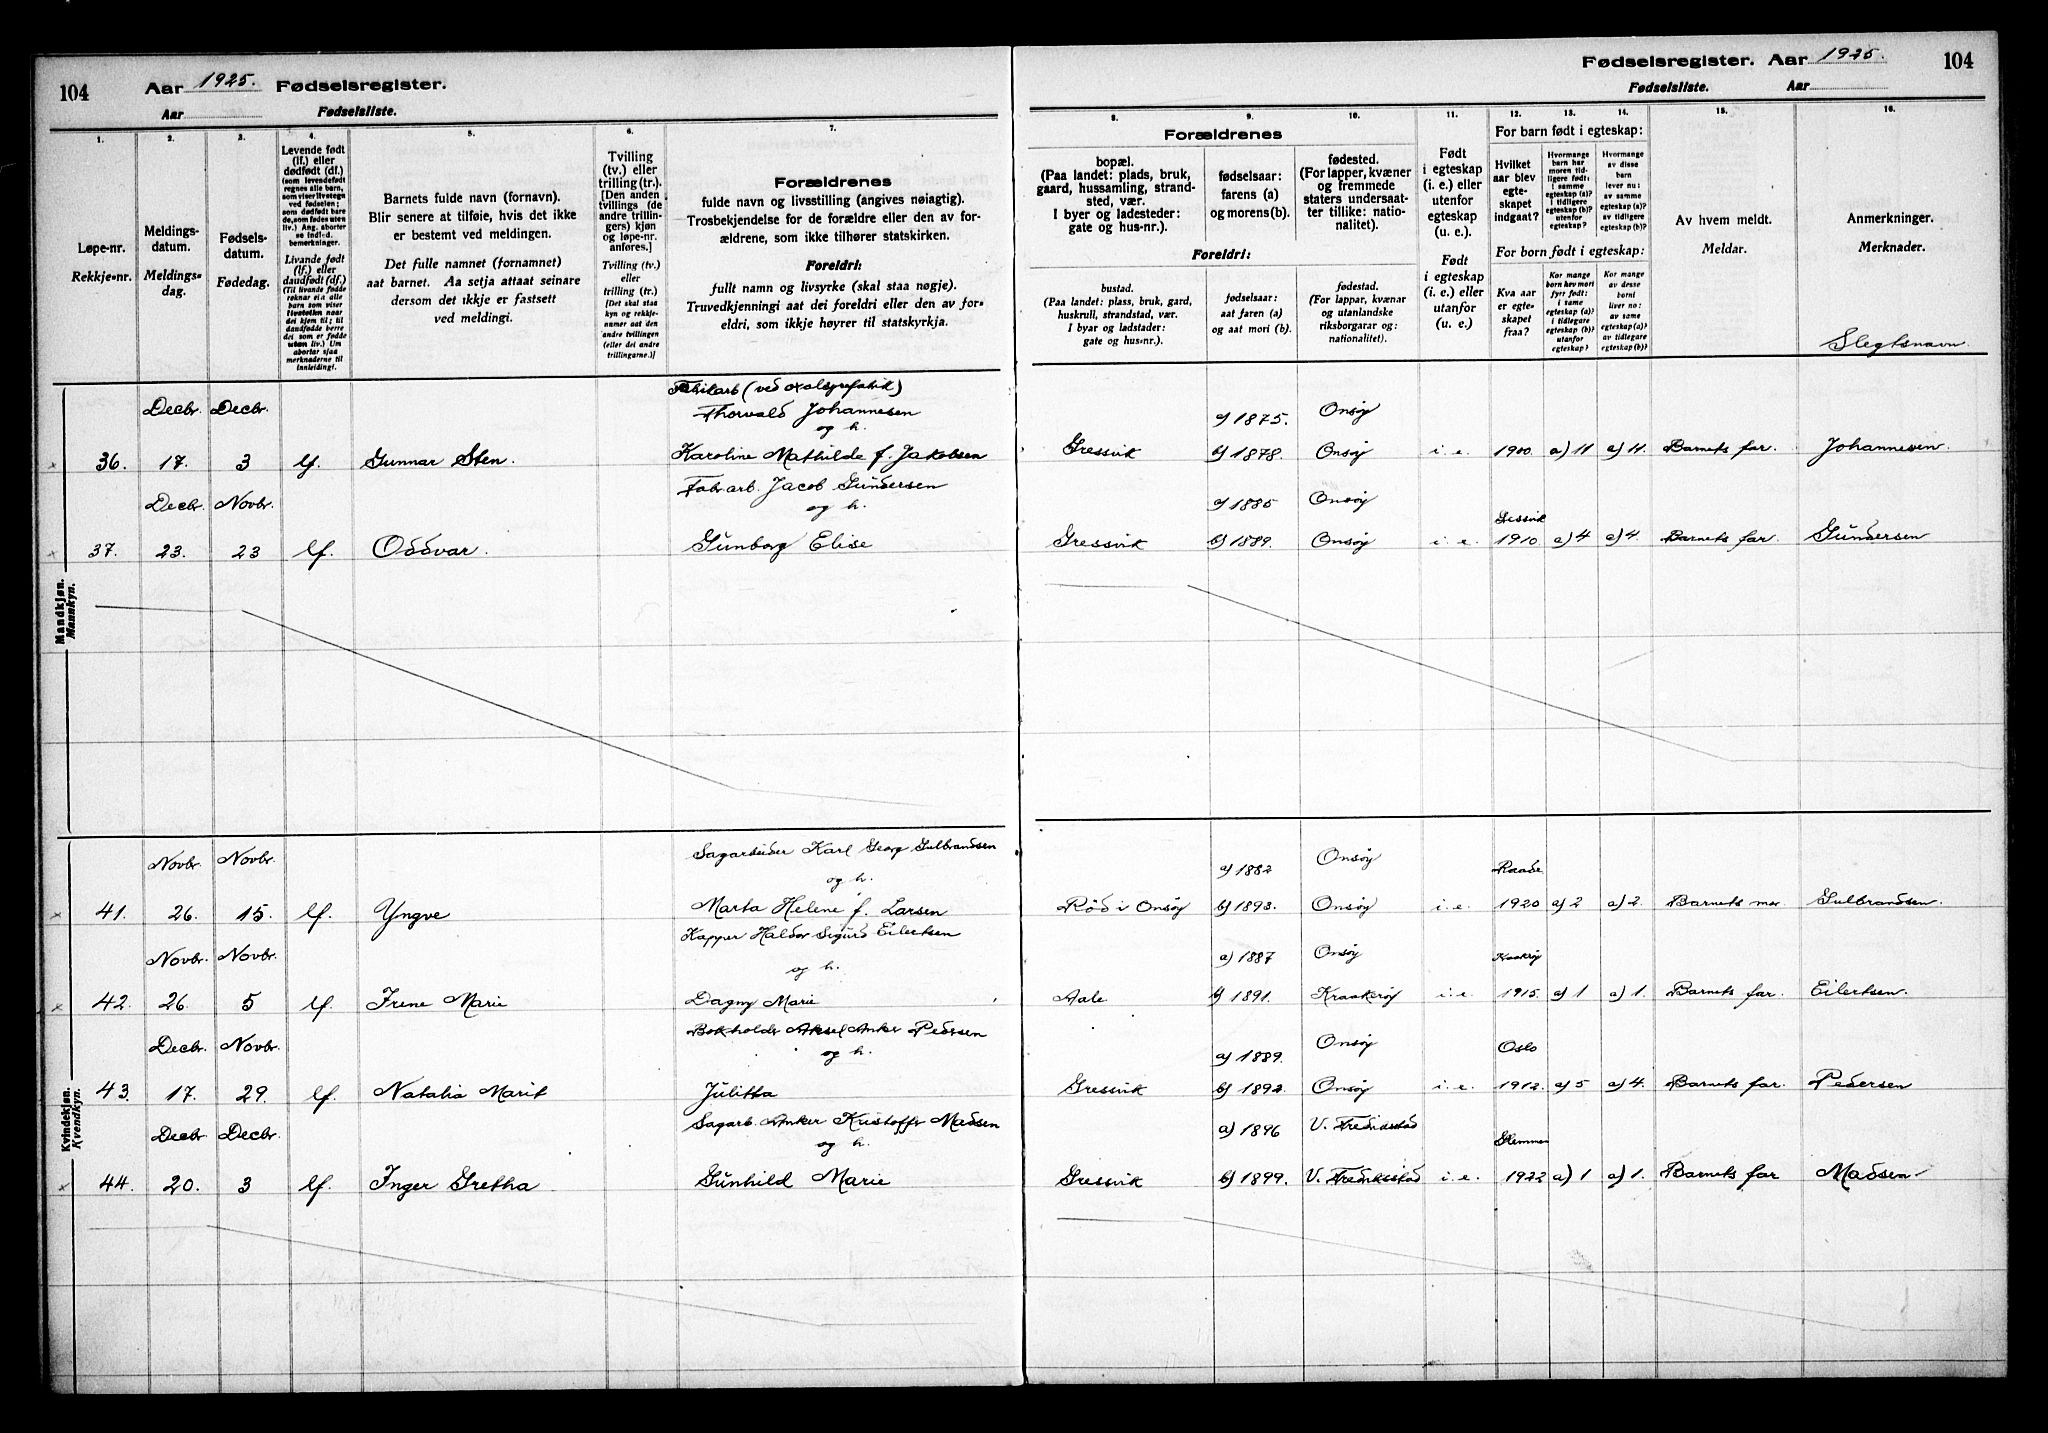 104 Aar 1925. Fødselsregister.
Aar Fødselsliste.
Fødselsregister. Aar 1925. 104
Fødselsliste. Aar
1. 2. 3. 4. 5. 6. 7.
Løpe-nr.
Rekkje-nr.
Meldings-
datum.
Meldings-
dag.
Fødsels-
datum.
Fødedag.
Levende født
(lf.) eller
dødfødt (df.)
Livande fødd
(lf.) eller
daudfødd (df.)
Barnets fulde navn (fornavn).
Blir senere at tilføie, hvis det ikke
er bestemt ved meldingen.
Det fulle namnet (fornamnet)
aat barnet. Aa setja attaat seinare
dersom det ikkje er fastsett
ved meldingi.
Tvilling
(tv.) eller
trilling (tr.).
[Den anden
tvillings (de
andre trillin-
gers) kjøn
og løpe-nr.
anføres.]
Tvilling (tv.)
eller
trilling (tr.)
[Det skal staa
kyn og rekkje-
numer aat den
andre tvillingen
(eller dei andre
trillingarne.)]
Forældrenes
fulde navn og livsstilling (angives nøiagtig).
Trosbekjendelse for de forældre eller den av for-
ældrene, som ikke tilhører statskirken.
Foreldri:
fullt namn og livsyrke (skal staa nøgje).
Truvedkjenningi aat dei foreldri eller den av for-
eldri, som ikkje høyrer til statskyrkja.
8. 9. 10. 11. 12. 13. 14. 15. 16.
Forældrenes
bopæl.
(Paa landet: plads, bruk,
gaard, hussamling, strand-
sted, vær.
I byer og ladesteder:
gate og hus-nr.).
Foreldri:
bustad.
(Paa landet: plass, bruk, gard,
huskrull, strandstad, vær.
I byar og ladstader:
gate og hus-nr.).
fødselsaar:
farens (a)
og morens (b).
fødselsaar:
aat faren (a)
og aat mori (b).
fødested.
(For lapper, kvæner
og fremmede
staters undersaat-
ter tillike: natio-
nalitet).
fødestad.
(For lappar, kvænar
og utanlandske
riksborgarar og:
nationalitet).
Født
i egteskap
(i. e.) eller
utenfor
egteskap
(u. e.).
Født
i egteskap
(i. e.) eller
utanfor
(u. e.).
For barn født i egteskap:
Hvilket
aar blev
egte-
skapet
indgaat?
Hvormange
barn har
moren tid-
ligere født:
i samme
egteskap (a)?
i tidligere
egteskap (b)?
utenfor
egteskap?
Hvormange
av disse
barn
lever nu:
av samme
egteskap (a)?
av tidligere
egteskap (b)?
For born født i egteskap:
Kva aar
er egte-
skapet
fraa?
Kor mange
born hev mori
fyrr født:
i same
egteskap (a)?
i tidlegare
egteskap (b)?
utanfor
egteskap?
Kor mange
av desse
borni
liver no:
av same
egteskap (a)?
av tidlegare
egteskap (b)?
Av hvem meldt.
Meldar.
Anmerkninger.
Merknader.
Slegtsnavn.
Mandkjøn.
Mannkyn.
Decbr. Decbr. Thorvald Johannesen a) 1875. Onsøy
og h.
36. 17. 3 lf. Gunnar Sten. Karoline Mathilde f. Jakobsen Gressvik b) 1878. Onsøy i. e. 1900. a) 11 a) 11. Barnets far. Johannesen.
Decbr. Novbr. Fabr.arb. Jacob Gundersen a) 1885 Onsøy
og h.
37. 23. 23 lf. Oddvar. Gunborg Elise Gressvik b) 1889. Onsøy i. e. 1910. a) 4 a) 4. Barnets far. Gundersen
Kvindekjøn.
Kvendkyn.
Novbr. Novbr. Sagarbeider Karl Georg Gulbrandsen a) 1882 Onsøy Raade
og h.
41. 26. 15. lf. Yngve Marta Helene f. Larsen Rød i Onsøy b) 1893. Onsøy i. e. 1920 a) 2 a) 2. Barnets mor Gulbrandsen.
Novbr. Novbr. Kapper Haldor Sigurd Eilertsen a) 1887 Onsøy Kraakerøy
og h.
42. 26. 5 lf. Irene Marie Dagny Marie Aale b) 1891. Kraakerøy i. e. 1915. a) 1 a) 1. Barnets far. Eilertsen.
Decbr. Novbr. Bokholder Aksel Anker Pedersen a) 1889. Onsøy Oslo
og h.
43. 17. 29. lf. Natalia Marit Julitta Gressvik b) 1892. Onsøy i. e. 1912. a) 5 a) 4. Barnets far. Pedersen
Decbr. Decbr. Sagarb. Anker Kristoffer Madsen a) 1896 V. Fredrikstad Glemmen
og h.
44. 20. 3 lf. Inger Gretha Gunhild Marie Gressvik b) 1899. V. Fredriksstad i. e. 1922 a) 1 a) 1. Barnets far Madsen